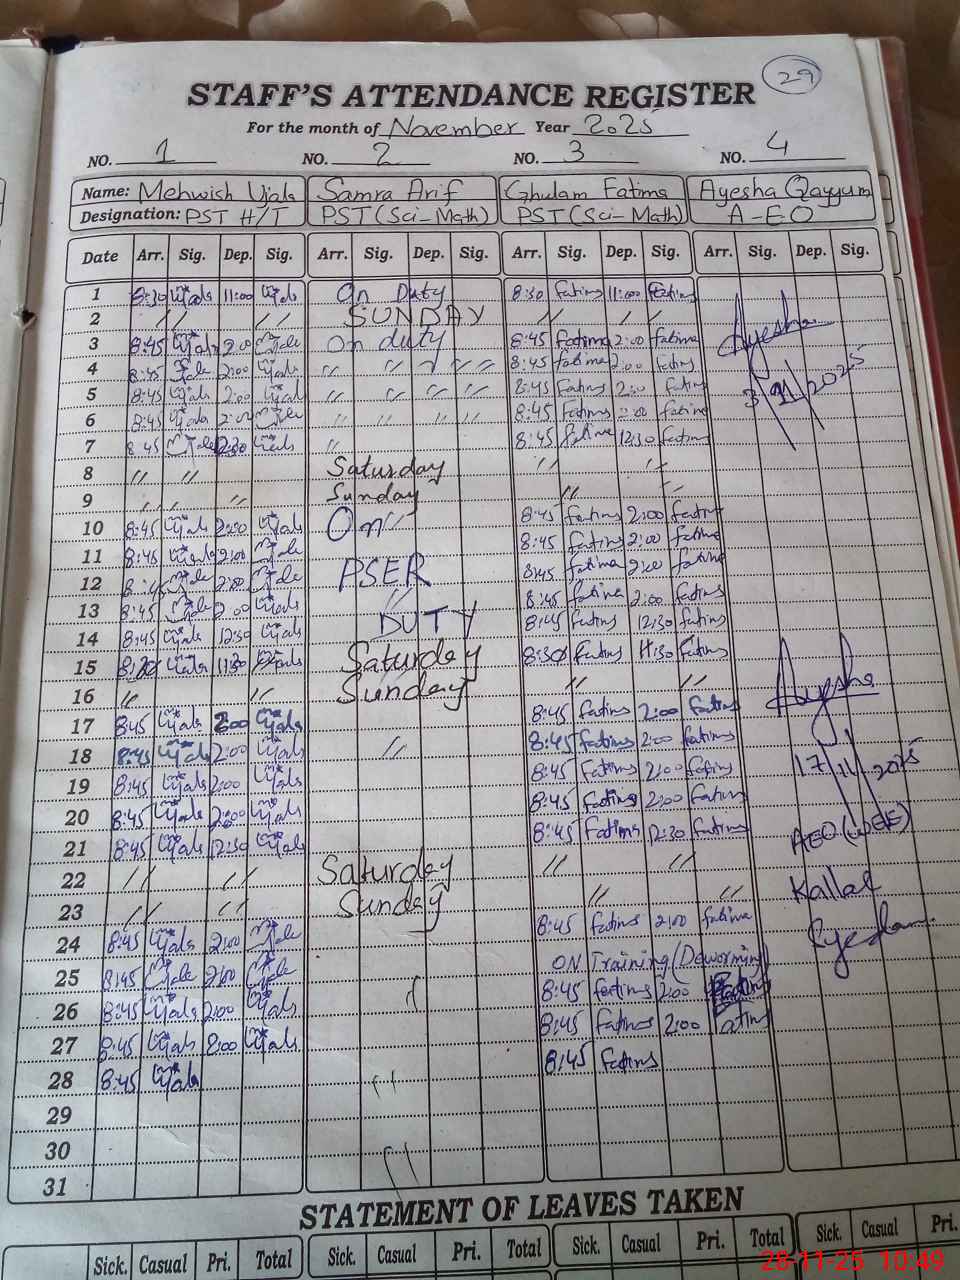 29
STAFF'S ATTENDANCE REGISTER
For the month of November Year 2025
NO. 1 NO. 2 NO. 3 NO. 4
Name: Mehwish Ujala Samra Arif Ghulam Fatima Ayesha Qayyum
Designation: PST H/T PST (Sci-Math) PST (Sci-Math) A-EO
Date Arr. Sig. Dep. Sig. Arr. Sig. Dep. Sig. Arr. Sig. Dep. Sig. Arr. Sig. Dep. Sig.
1 8:30 Ujala 11:00 Ujala On Duty 8:30 Fatima 11:00 Fatima
2 // // SUNDAY // / / //
3 8:45 Ujala 2:00 On duty 8:45 Fatima 2:00 Fatima Ayesha
4 8:45 2:00 Ujala // // // // // 8:45 Fatima 2:00 Fatima
5 8:45 Ujala 2:00 Ujala // // // // 8:45 Fatima 2:00 Fatima 3/11/2025
6 8:45 Ujala 2:00 // // // // 8:45 Fatima 2:00 Fatima
7 8:45 12:30 Ujala // 8:45 Fatima 12:30 Fatima
8 // // Saturday // //
9 // // // Sunday // //
10 8:45 Ujala 2:00 Ujala On 8:45 Fatima 2:00 Fatima
11 8:45 Ujala 2:00 8:45 Fatima 2:00 Fatima
12 2:00 PSER 8:45 Fatima 2:00 Fatima
13 8:45 2:00 Ujala 8:45 Fatima 2:00 Fatima
14 8:45 Ujala 12:30 Ujala DUTY 8:45 Fatima 12:30 Fatima
15 8:30 Ujala 11:30 Ujala Saturday 8:30 Fatima 11:30 Fatima
16 // // Sunday // // Ayesha
17 8:45 Ujala 2:00 Ujala 8:45 Fatima 2:00 Fatima
18 8:45 Ujala 2:00 Ujala // 8:45 Fatima 2:00 Fatima
19 8:45 Ujala 2:00 Ujala 8:45 Fatima 2:00 Fatima 17/11/2025
20 8:45 Ujala 2:00 Ujala 8:45 Fatima 2:00 Fatima
21 8:45 Ujala 12:30 Ujala 8:45 Fatima 12:30 Fatima AEO
22 // // Saturday // //
23 // // Sunday // // Kallar
24 8:45 Ujala 2:00 8:45 Fatima 2:00 Fatima Syedan
25 8:45 2:00 ON Training (Deworming)
26 8:45 Ujala 2:00 Ujala 8:45 Fatima 2:00 Fatima
27 8:45 Ujala 8:00 Ujala 8:45 Fatima 2:00 Fatima
28 8:45 Ujala // 8:45 Fatima
29
30
31
STATEMENT OF LEAVES TAKEN
Sick. Casual Pri. Total Sick. Casual Pri. Total Sick. Casual Pri. Total Sick. Casual Pri.
28-11-25 10:49